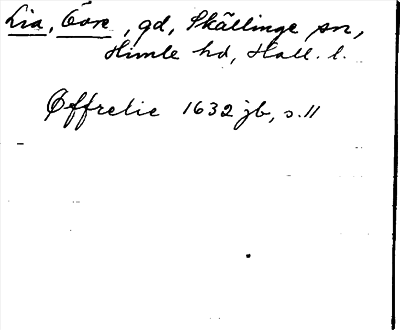 Lia, Övre, gd, Skällinge sn,
Himle hd, Hall. l.
Øffrelie 1632 jb, s. 11